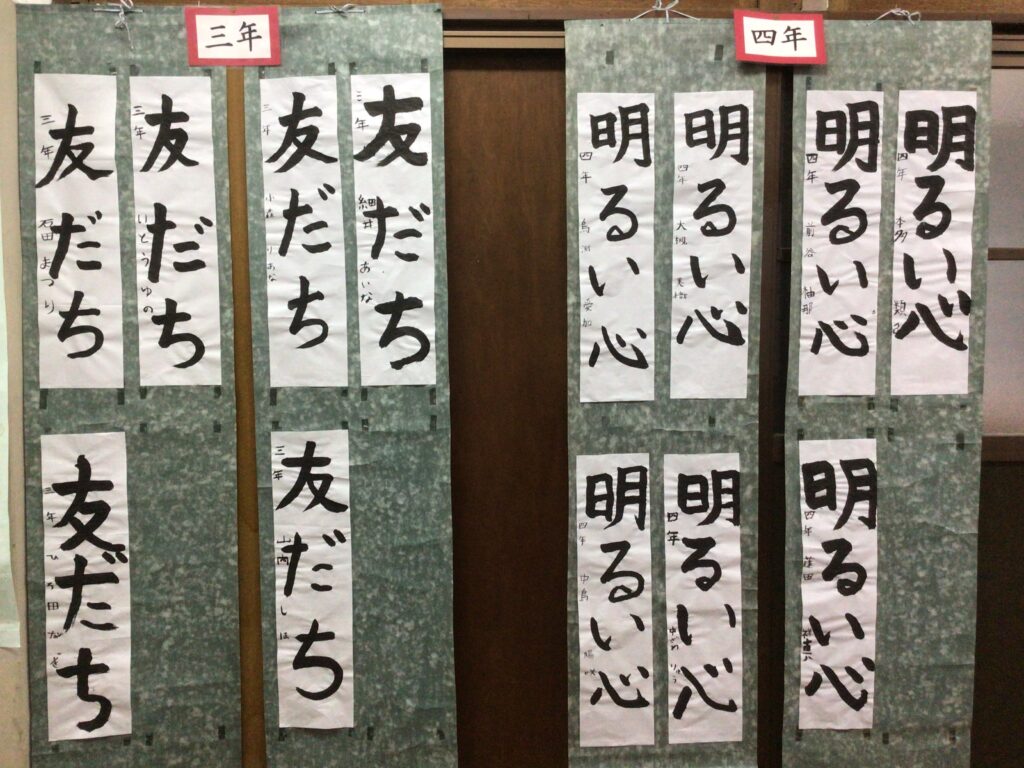 三年
友だち
三年 石田まつり
友だち
三年 いとうゆの
友だち
三年 小森りあな
友だち
三年 細井あいな
友だち
三年
友だち
三年 山内しほ
四年
明るい心
四年
明るい心
四年
明るい心
四年 前谷
明るい心
四年 本多
明るい心
四年 中島
明るい心
四年
明るい心
四年 蓮田